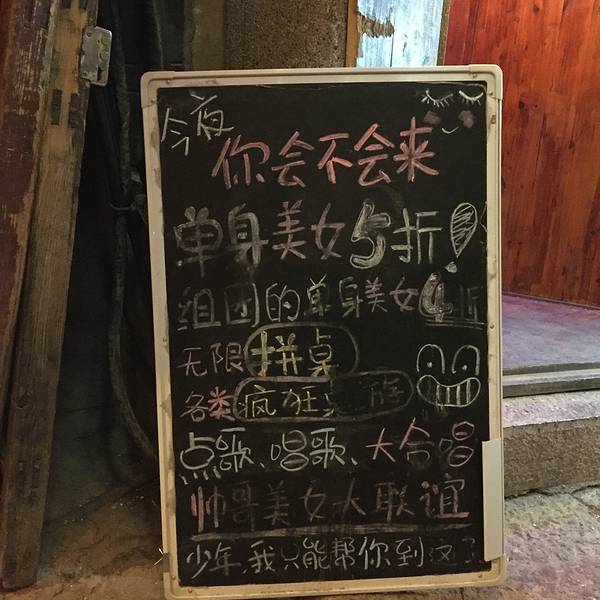 今夜
你会不会来
单身美女5折!
组团的单身美女4折
无限拼桌
各类疯狂
点歌、唱歌、大合唱
帅哥美女大联谊
少年,我只能帮你到这了